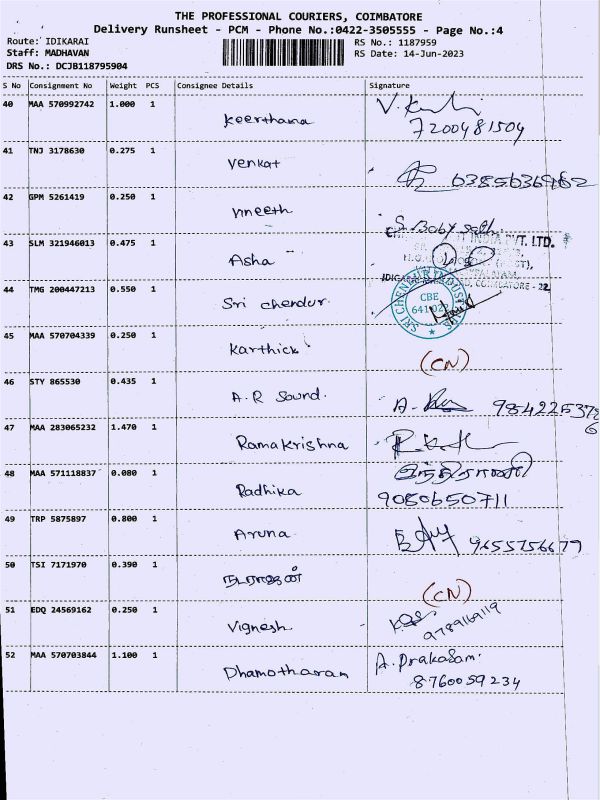 THE PROFESSIONAL COURIERS, COIMBATORE
Delivery Runsheet - PCM - Phone No.:0422-3505555 - Page No.:4
Route: IDIKARAI RS No.: 1187959
Staff: MADHAVAN RS Date: 14-Jun-2023
DRS No.: DCJB118795904
S No Consignment No Weight PCS Consignee Details Signature
40 MAA 570992742 1.000 1 Keerthana
7200481504
41 TNJ 3178630 0.275 1 Venkat 6385636962
42 GPM 5261419 0.250 1 vineeth S. Boby
INDIA PVT. LTD.
43 SLM 321946013 0.475 1 Asha
COIMBATORE - 22.
44 TMG 200447213 0.550 1 Sri chendur
SRI CHENDUR
CBE
641 022
45 MAA 570704339 0.250 1 Karthick (CN)
46 STY 865530 0.435 1 A.R Sound. A.
47 MAA 283065232 1.470 1 Ramakrishna
48 MAA 571118837 0.080 1 Radhika இந்திராணி
9080650711
49 TRP 5875897 0.800 1 Aruna 9655756679
50 TSI 7171970 0.390 1 நடராஜன் (CN)
51 EDQ 24569162 0.250 1 Vignesh 9789169119
52 MAA 570703844 1.100 1 Dhamotharan A. Prakasam.
8760059234